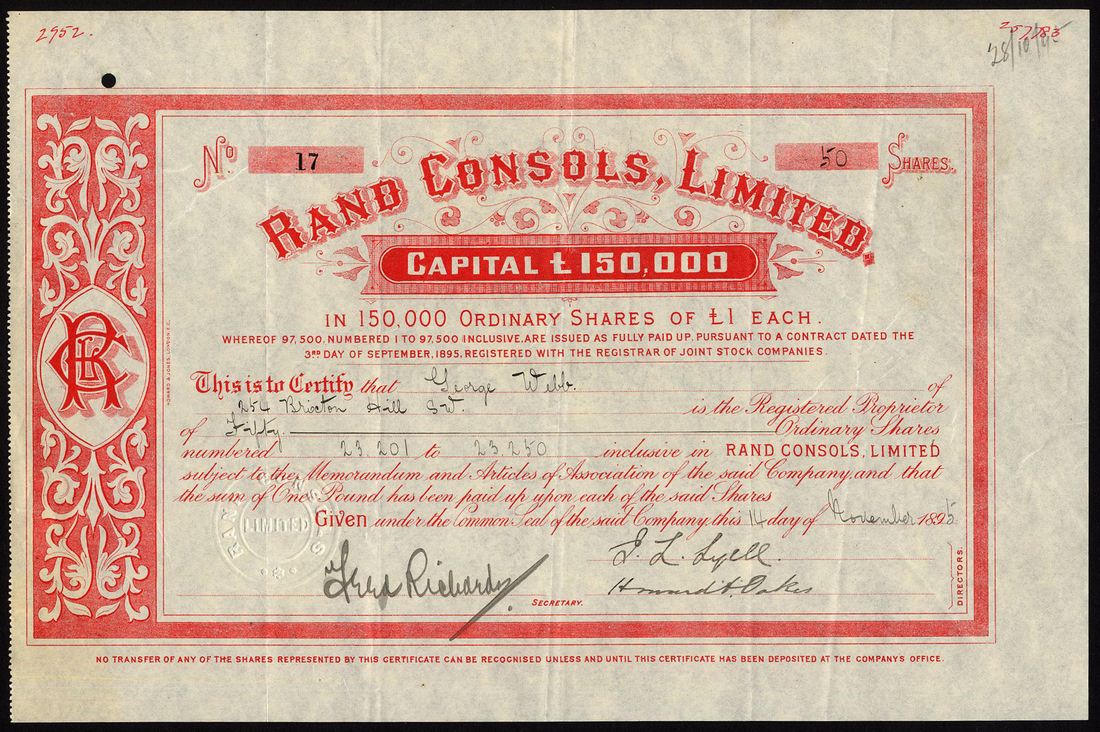 2952.
257,783
28/10/
No 17
50 SHARES.
RAND CONSOLS, LIMITED.
CAPITAL £150,000
IN 150,000 ORDINARY SHARES OF £1 EACH.
WHEREOF 97,500, NUMBERED 1 TO 97,500 INCLUSIVE, ARE ISSUED AS FULLY PAID UP, PURSUANT TO A CONTRACT DATED THE
3RD DAY OF SEPTEMBER, 1895, REGISTERED WITH THE REGISTRAR OF JOINT STOCK COMPANIES.
This is to Certify that George Webb. of
254 Brixton Hill SW. is the Registered Proprietor
of Fifty Ordinary Shares
numbered 23,201 to 23,250 inclusive in RAND CONSOLS, LIMITED
subject to the Memorandum and Articles of Association of the said Company, and that
the sum of One Pound has been paid up upon each of the said Shares
Given under the Common Seal of the said Company, this 14 day of November 1895
LIMITED
Fred Richards
SECRETARY.
E. L. Lyell.
Howard A. Oakes
DIRECTORS.
NO TRANSFER OF ANY OF THE SHARES REPRESENTED BY THIS CERTIFICATE CAN BE RECOGNISED UNLESS AND UNTIL THIS CERTIFICATE HAS BEEN DEPOSITED AT THE COMPANY'S OFFICE.